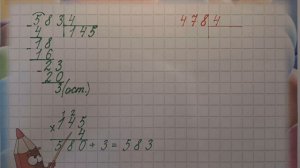 583 4
4 145
18
16
23
20
3 (ост.)
12
145
× 4
580 + 3 = 583
4784